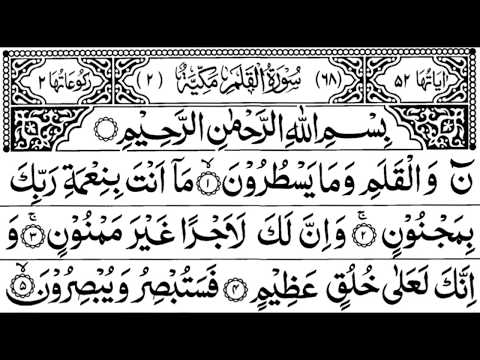 اٰيَاتُهَا ۵۲ (۶۸) سُوْرَةُ الْقَلَمِ مَكِّيَّةٌ (۲) رُكُوْعَاتُهَا ۲
بِسْمِ اللهِ الرَّحْمٰنِ الرَّحِيْمِ
نٓ وَالْقَلَمِ وَمَا يَسْطُرُوْنَ ۙ﴿۱﴾ مَاۤ اَنْتَ بِنِعْمَةِ رَبِّكَ
بِمَجْنُوْنٍ ۚ﴿۲﴾ وَاِنَّ لَكَ لَاَجْرًا غَيْرَ مَمْنُوْنٍ ۚ﴿۳﴾ وَ
اِنَّكَ لَعَلٰى خُلُقٍ عَظِيْمٍ ﴿۴﴾ فَسَتُبْصِرُ وَيُبْصِرُوْنَ ۙ﴿۵﴾